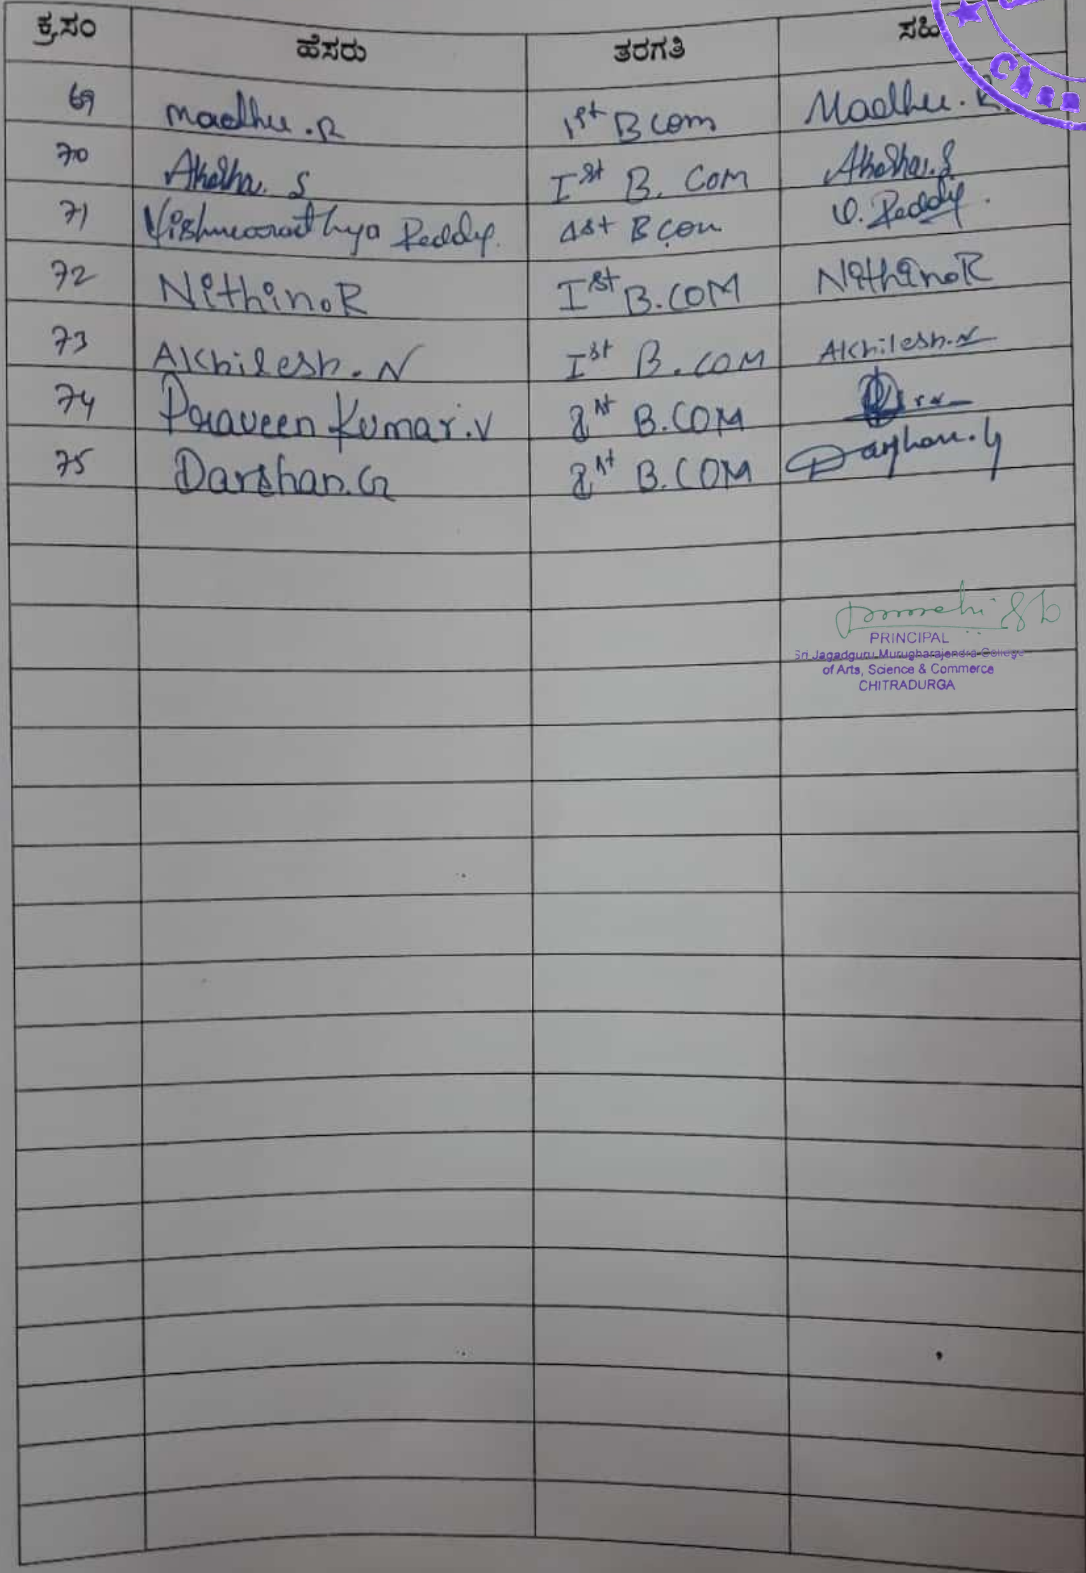 ಕ್ರ.ಸಂ ಹೆಸರು ತರಗತಿ ಸಹಿ
69 Madhu.R 1st B com Madhu.R
70 Akasha. S Ist B. Com Akasha.S
71 Reddy. 1st B com V. Reddy.
72 Nithin.R Ist B.COM Nithin.R
73 Akhilesh.N Ist B.COM Akhilesh.N
74 Praveen Kumar.V B.COM
75 Darshan.G B.COM Darshan.G
PRINCIPAL
Sri Jagadguru Murugharajendra College
of Arts, Science & Commerce
CHITRADURGA